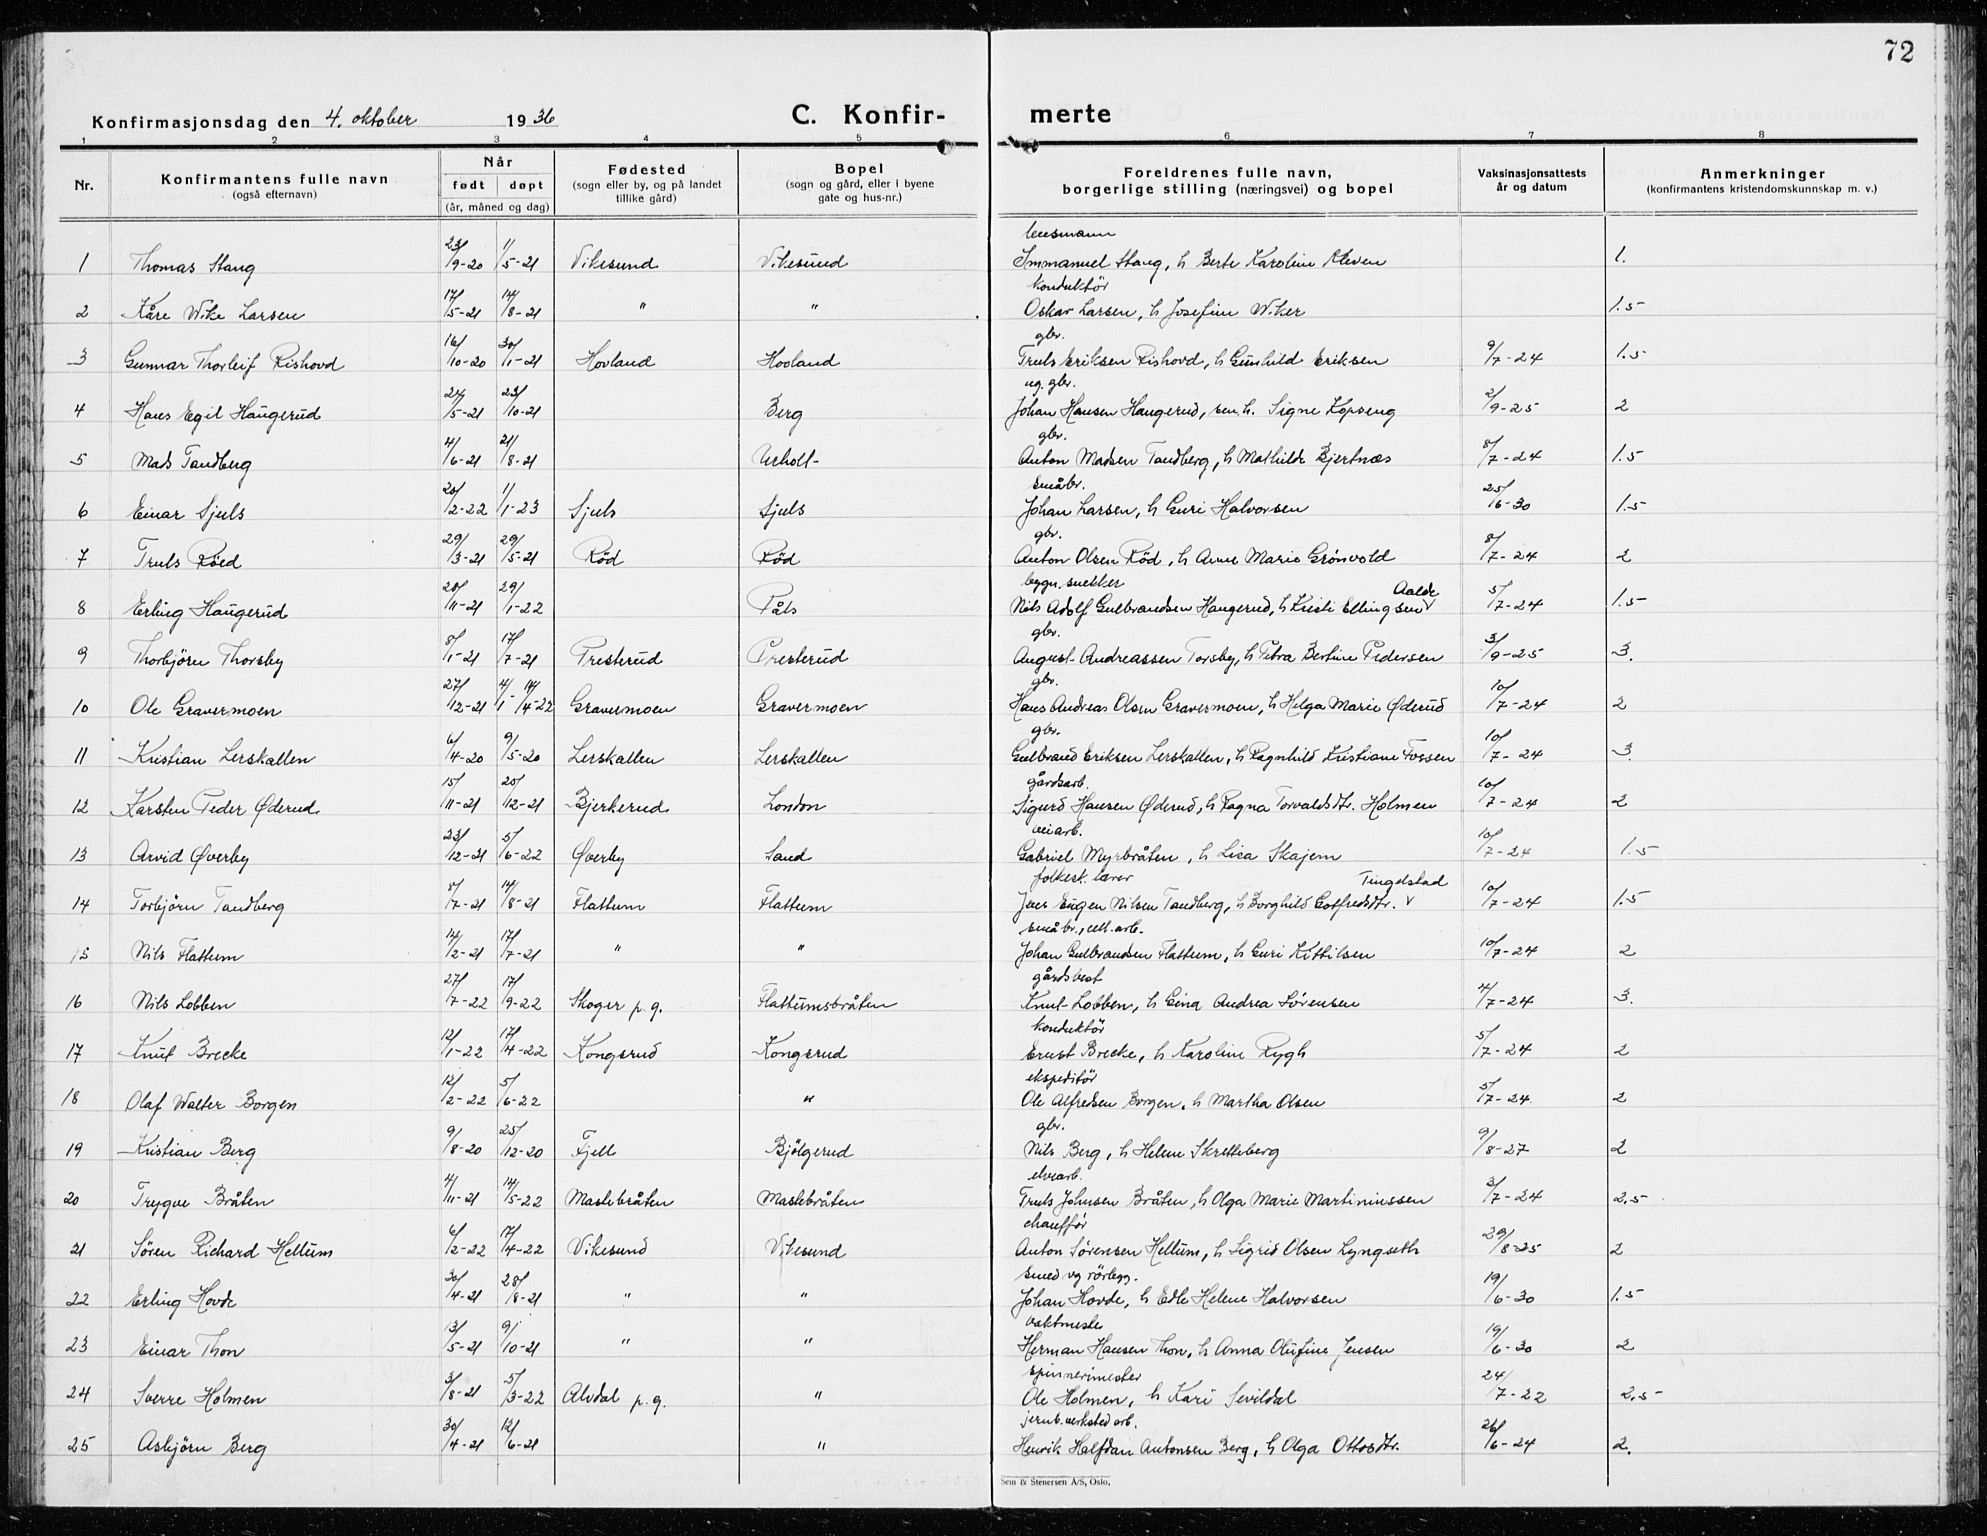 72
Konfirmasjonsdag den 4. oktober 1936 C. Konfir- merte
1 2 3 4 5 6 7 8
Nr. Konfirmantens fulle navn (også efternavn) Når født døpt (år, måned og dag) Fødested (sogn eller by, og på landet tillike gård) Bopel (sogn og gård, eller i byene gate og hus-nr.) Foreldrenes fulle navn, borgerlige stilling (næringsvei) og bopel Vaksinasjonsattests år og datum Anmerkninger (konfirmantens kristendomskunnskap m. v.)
lensmann
1 Thomas Stang 23/9-20 1/5-21 Vikesund Vikesund Immanuel Stang, h Berte Karoline Kleven 1.
konduktör
2 Kåre Wike Larsen 17/5-21 14/8-21 " " Oskar Larsen, h Josefine Wiker 1.5
gbr.
3 Gunnar Thorleif Rishovd 16/10-20 30/1-21 Hovland Hovland Truls Eriksen Rishovd, h Gunhild Eriksen 9/7-24 1.5
ug. gbr.
4 Hans Egil Haugerud 24/5-21 23/10-21 Berg Johan Hansen Haugerud, sen. h. Signe Kopseng 2/9-25 2
gbr.
5 Mads Tandberg 4/6-21 21/8-21 Anton Madsen Tandberg, h Mathilde Bjertnæs 8/7-24 1.5
småbr.
6 Einar Sjuls 20/2-22 1/1-23 Sjuls Sjuls Johan Larsen, h Guri Halvorsen 25/6-30 1.5
gbr.
7 Truls Röed 29/3-21 29/5-21 Röd Röd Anton Olsen Röd, h Anne Marie Grönvold 8/7-24 2
bygn. snekker Aalde
8 Erling Haugerud 20/11-21 29/1-22 Påls Nils Adolf Gulbrandsen Haugerud, h Kristi Ellingsen V 5/7-24 1.5
gbr.
9 Thorbjörn Thorsby 8/1-21 17/7-21 Presterud Presterud August Andreassen Torsby, h Petra Bertine Pedersen 3/9-25 3.
gbr.
10 Ole Gravermoen 27/12-21 4/1- 14/4-22 Gravermoen Gravermoen Hans Andreas Olsen Gravermoen, h Helga Marie Øderud 10/7-24 2
gbr.
11 Kristian Lerskallen 6/4-20 9/5-20 Lerskallen Lerskallen Gulbrand Eriksen Lerskallen, h Ragnhild Kristiane Fossen 10/7-24 3.
gårdsarb.
12 Karsten Peder Øderud 15/11-21 20/12-21 Bjerkerud London Sigurd Hansen Øderud, h Ragna Torvaldsdtr. Holmen 10/7-24 2
veiarb.
13 Arvid Øverby 23/12-21 5/6-22 Øverby Sand Gabriel Myrbråten, h Lisa Skajem 10/7-24 1.5
folkesk. lærer Tingelstad
14 Torbjörn Tandberg 8/7-21 14/8-21 Flattum Flattum Jens Eugen Nilsen Tandberg, h Borghild Gotfredsdtr. V 10/7-24 1.5
småbr., cell. arb.
15 Nils Flattum 14/2-21 17/7-21 " " Johan Gulbrandsen Flattum, h Guri Kittilsen 10/7-24 2
gårdsbest
16 Nils Lobben 27/7-22 17/9-22 Skoger p.g. Flattumsbråten Knut Lobben, h Gina Andrea Sörensen 4/7-24 3.
konduktör
17 Knut Brecke 12/1-22 17/4-22 Kongsrud Kongsrud Ernst Brecke, h Karoline Rygh 5/7-24 2
ekspeditör
18 Olaf Walter Borgen 12/2-22 5/6-22 " Ole Alfredsen Borgen, h Martha Olsen 5/7-24 2
gbr.
19 Kristian Berg 9/8-20 25/12-20 Fjell Bjölgerud Nils Berg, h Helene Skretteberg 9/8-27 2
elvearb.
20 Trygve Bråten 4/11-21 14/5-22 Mastebråten Mastebråten Truls Johnsen Bråten, h Olga Marie Martiniussen 3/7-24 2.5
chauffør
21 Sören Richard Hellum 6/2-22 17/4-22 Vikesund Vikesund Anton Sörensen Hellum, h Sigrid Olsen Lyngseth 20/8-25 2
smed og rörlegg.
22 Erling Hovde 30/4-21 28/8-21 " " Johan Hovde, h Edle Helene Halvorsen 19/6-30 1.5
vaktmester
23 Einar Thon 13/5-21 9/10-21 " " Herman Hansen Thon, h Anna Olufine Jensen 19/6-30 2
spinnerimester
24 Sverre Holmen 3/8-21 5/3-22 Alvdal p.g. " Ole Holmen, h Kari Sevildal 24/7-22 2.5
jernb. verksted arb.
25 Asbjörn Berg 30/4-21 12/6-21 " Henrik Halfdan Antonsen Berg, h Olga Ottosdtr. 26/6-24 2.
Sem & Stenersen A/S, Oslo.